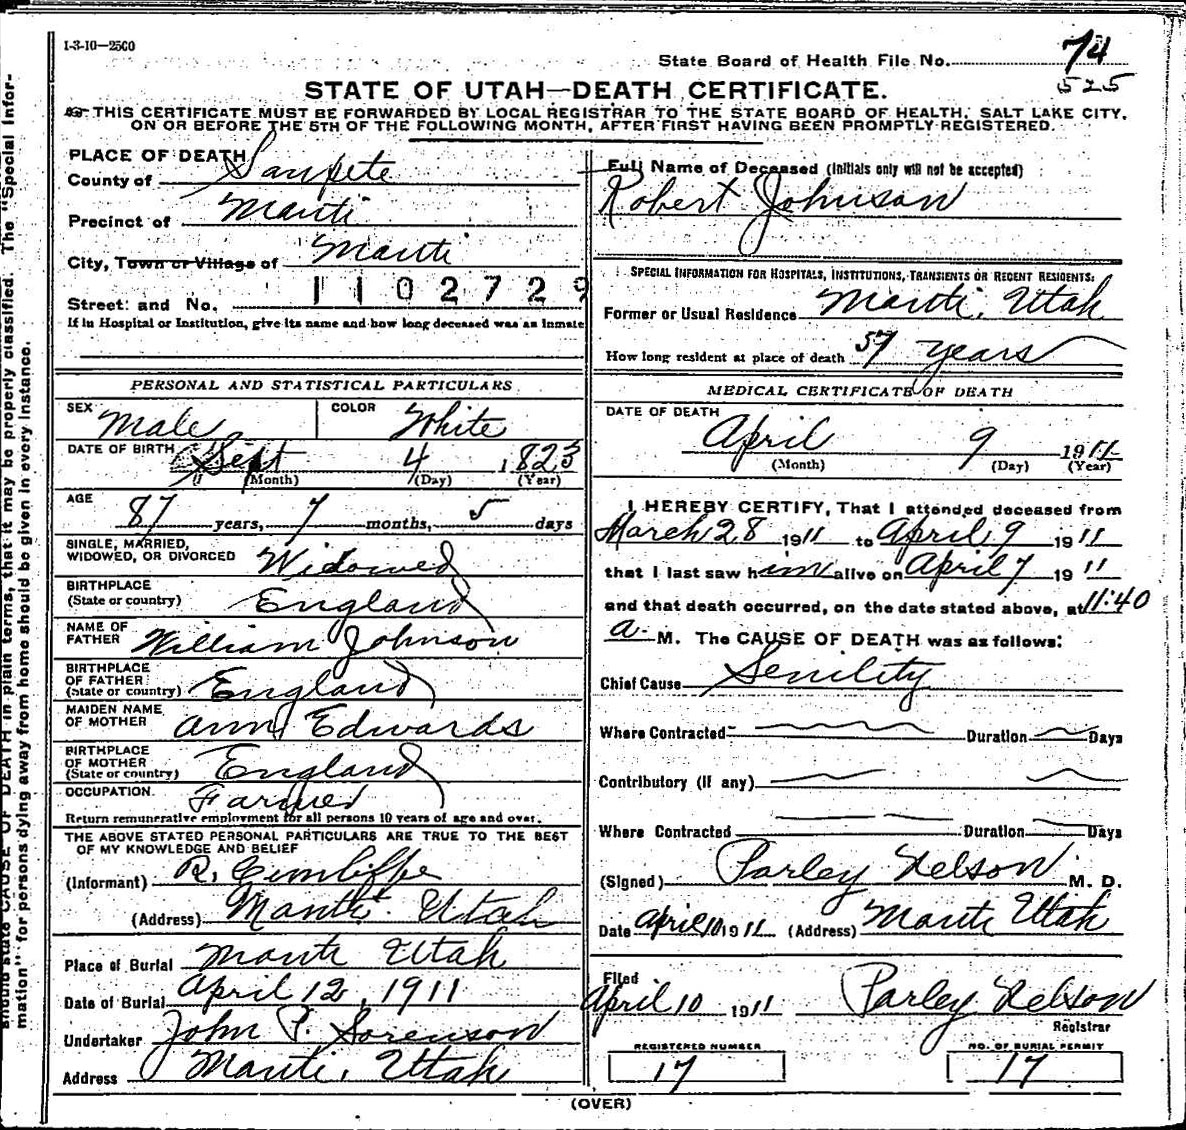 1-3-10—2500
State Board of Health File No. 74
525
STATE OF UTAH—DEATH CERTIFICATE.
THIS CERTIFICATE MUST BE FORWARDED BY LOCAL REGISTRAR TO THE STATE BOARD OF HEALTH, SALT LAKE CITY,
ON OR BEFORE THE 5TH OF THE FOLLOWING MONTH, AFTER FIRST HAVING BEEN PROMPTLY REGISTERED.
PLACE OF DEATH
County of Sanpete
Precinct of Manti
City, Town or Village of Manti
Street and No. 1102729
If in Hospital or Institution, give its name and how long deceased was an inmate
PERSONAL AND STATISTICAL PARTICULARS
SEX Male COLOR White
DATE OF BIRTH Sept 4 1823
(Month) (Day) (Year)
AGE
87 years, 7 months, 5 days
SINGLE, MARRIED,
WIDOWED, OR DIVORCED Widowed
BIRTHPLACE
(State or country) England
NAME OF
FATHER William Johnson
BIRTHPLACE
OF FATHER
(State or country) England
MAIDEN NAME
OF MOTHER Ann Edwards
BIRTHPLACE
OF MOTHER
(State or country) England
OCCUPATION Farmer
Return remunerative employment for all persons 10 years of age and over.
THE ABOVE STATED PERSONAL PARTICULARS ARE TRUE TO THE BEST
OF MY KNOWLEDGE AND BELIEF
(Informant) R. Cunliffe
(Address) Manti Utah
Place of Burial Manti Utah
Date of Burial April 12, 1911
Undertaker John P. Sorenson
Address Manti, Utah
Full Name of Deceased (Initials only will not be accepted)
Robert Johnson
SPECIAL INFORMATION FOR HOSPITALS, INSTITUTIONS, TRANSIENTS OR RECENT RESIDENTS:
Former or Usual Residence Manti, Utah
How long resident at place of death 57 years
MEDICAL CERTIFICATE OF DEATH
DATE OF DEATH
April 9 1911
(Month) (Day) (Year)
I HEREBY CERTIFY, That I attended deceased from
March 28 1911 to April 9 1911
that I last saw him alive on April 7 1911
and that death occurred, on the date stated above, at 11:40
a. M. The CAUSE OF DEATH was as follows:
Chief Cause Senility
Where Contracted Duration Days
Contributory (if any)
Where Contracted Duration Days
(Signed) Parley Nelson M. D.
Date April 10 1911 (Address) Manti Utah
Filed
April 10 1911 Parley Nelson
Registrar
REGISTERED NUMBER
17
NO. OF BURIAL PERMIT
17
(OVER)
should state CAUSE OF DEATH in plain terms, that it may be properly classified. The "Special Infor-
mation" for persons dying away from home should be given in every instance.